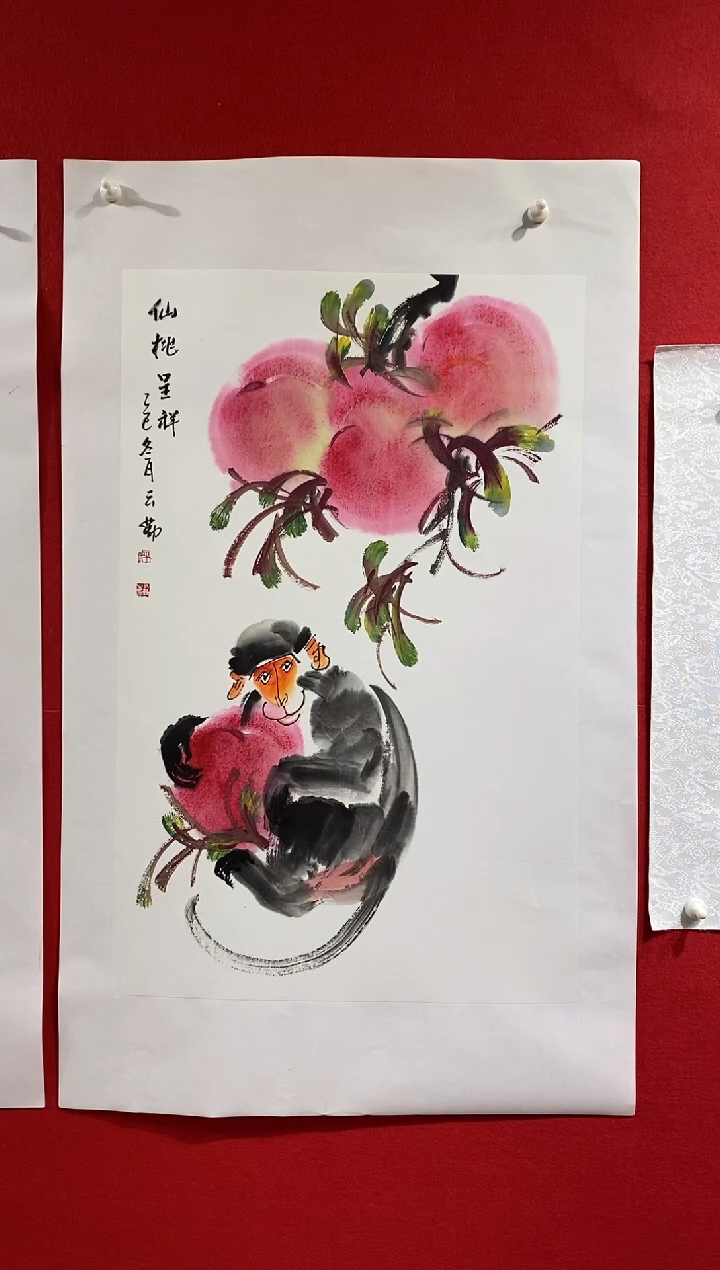 仙桃呈祥
乙巳冬月云勤